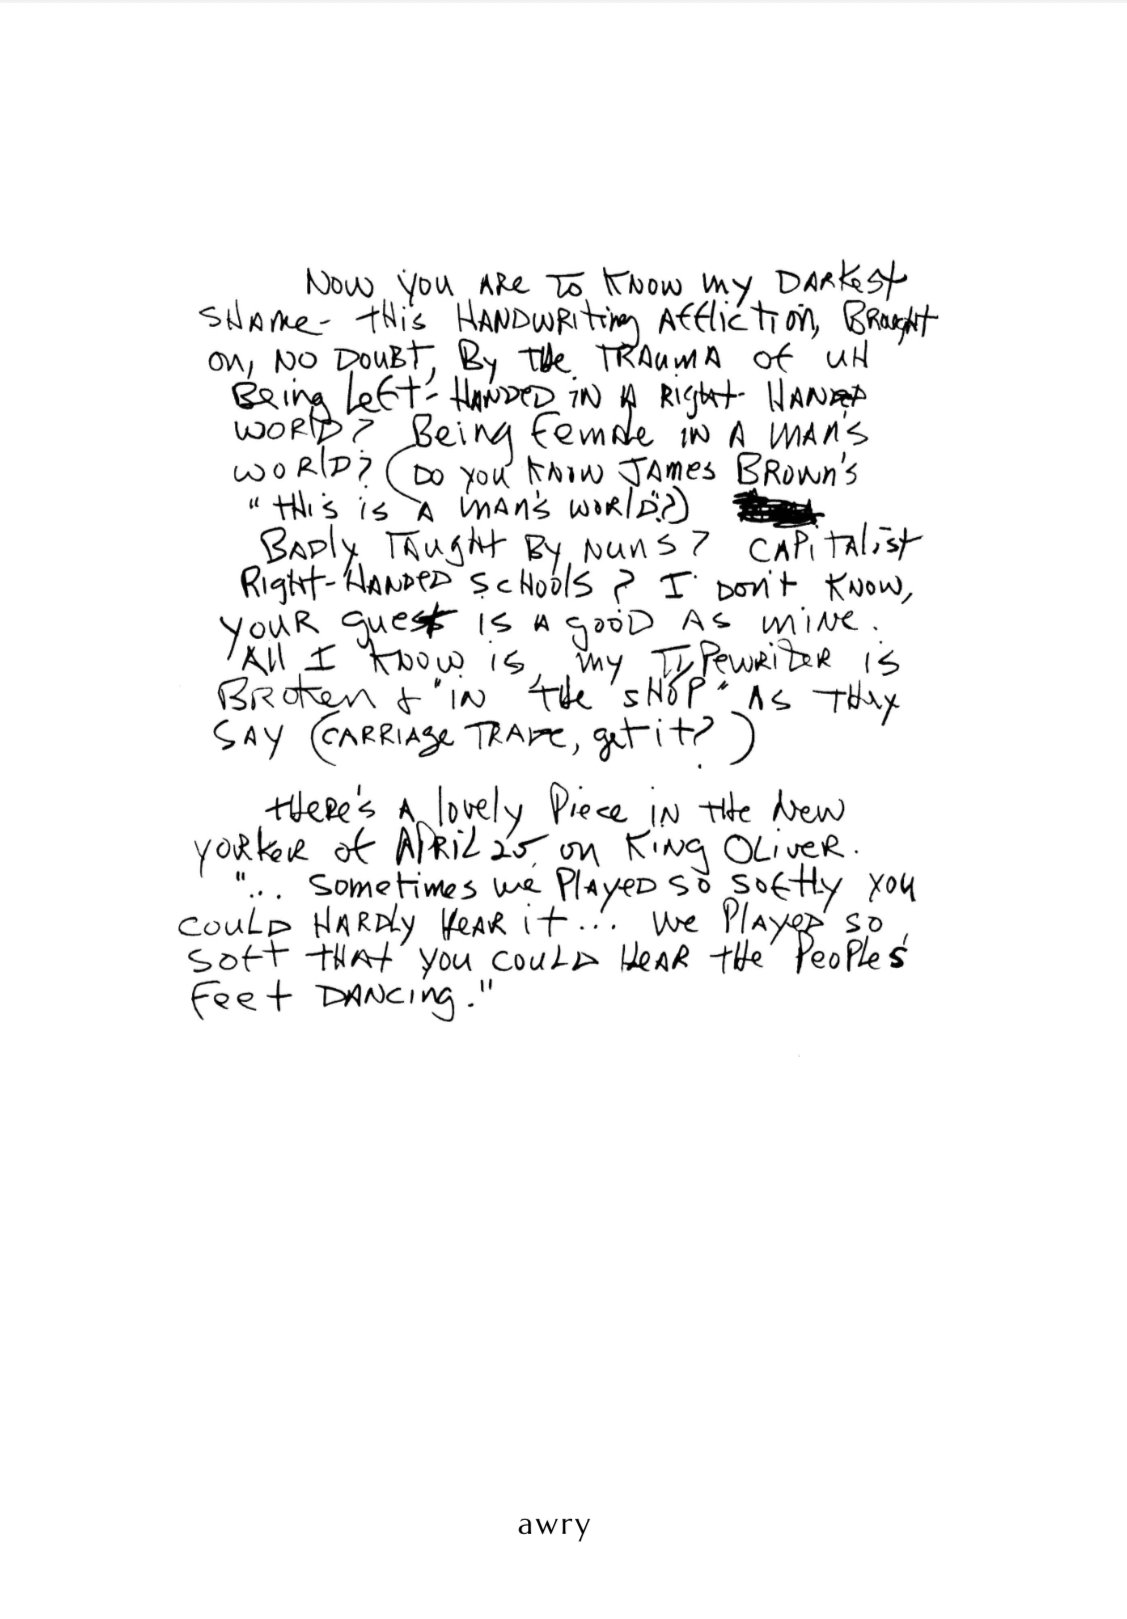 Now you are to know my darkest
shame- this handwriting affliction, brought
on, no doubt, by the trauma of uh
being left-handed in a right-handed
world? Being female in a man's
world? (Do you know James Brown's
"this is a man's world"?)
Badly taught by nuns? Capitalist
right-handed schools? I don't know,
your guest is a good as mine.
All I know is, my typewriter is
broken & "in the shop" as they
say (carriage trade, get it?)
there's a lovely piece in the New
Yorker of April 25 on King Oliver.
"... sometimes we played so softly you
could hardly hear it... we played so
soft that you could hear the people's
feet dancing."
awry